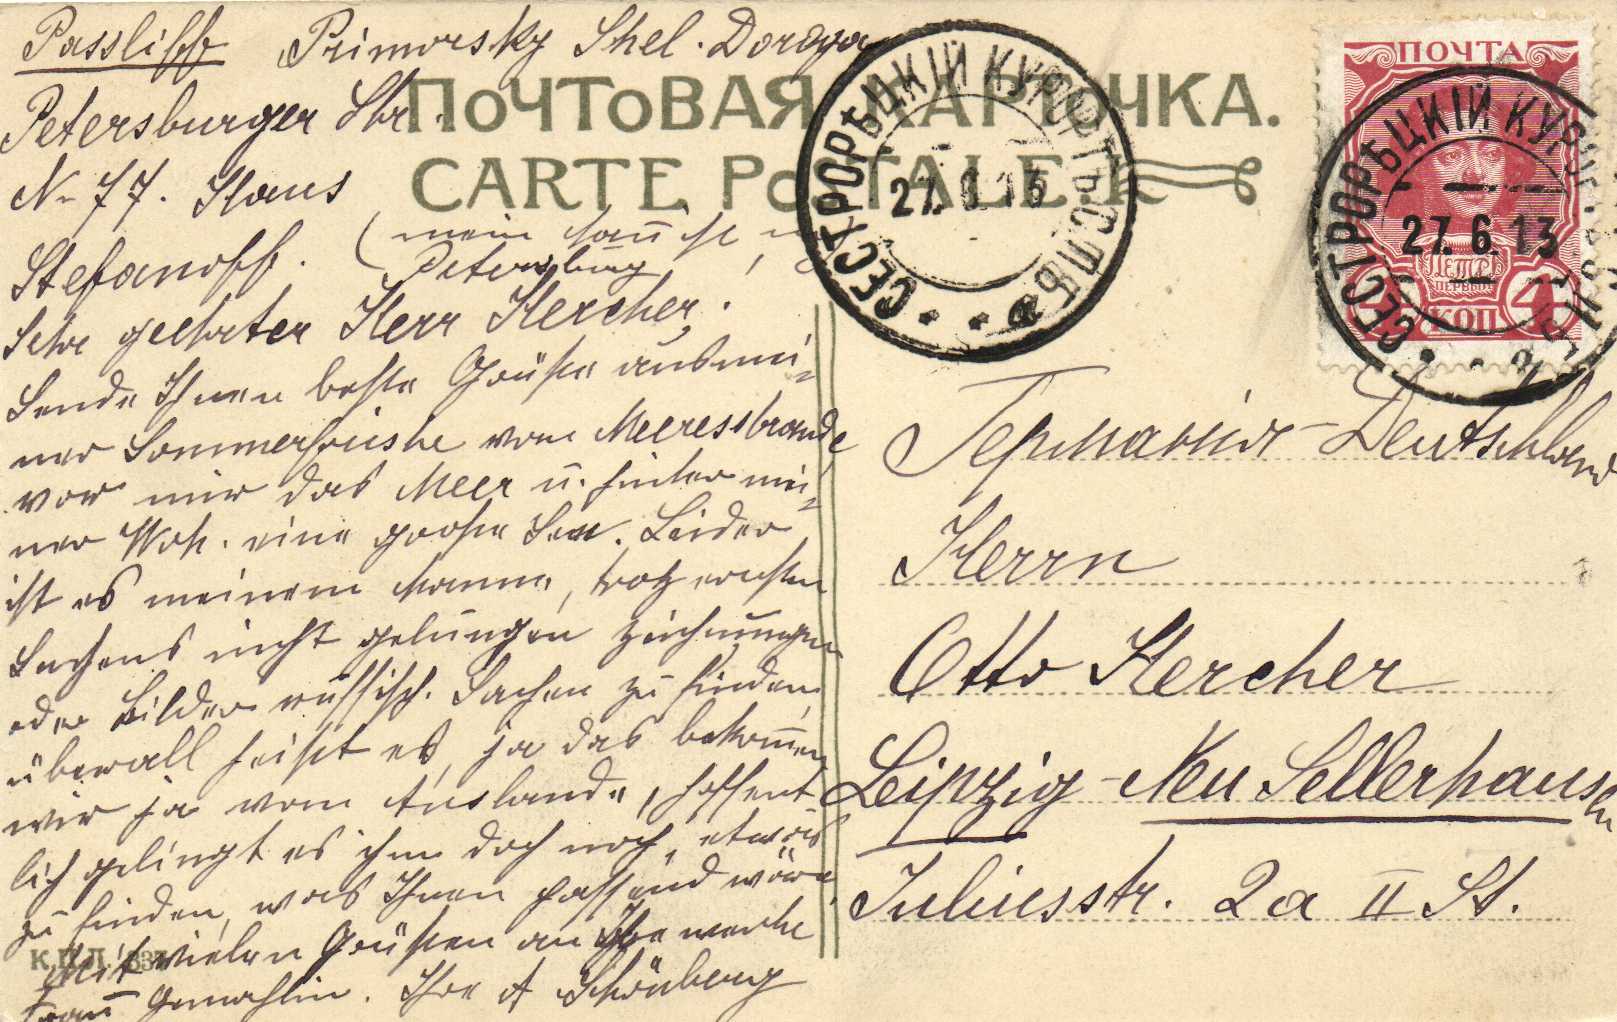 Passliff Primorsky Shel. Doroga
Petersburger Str.
No 77. Haus
Stefanoff.
(mein Haus ist
Petersburg
Sehr geehrter Herr Kercher,
Sende Ihnen beste Grüße aus mei-
ner Sommerfrische vom Meeresstrande,
vor mir das Meer u. hinter mei-
ner Woh. eine große See. Leider
ist es meinem Manne, trotz
Suchens nicht gelungen Zeichnungen
oder Bilder russisch. Sachen zu finden,
überall heißt es, ja das bekommen
wir ja vom Auslande, hoffent-
lich gelingt es ihm doch noch, etwas
zu finden, was Ihnen passend wäre
Mit vielen Grüßen an Ihre werte
Frau Gemahlin. Ihre A Schönberg
ПОЧТОВАЯ КАРТОЧКА.
CARTE POSTALE.
СЕСТРОРѢЦКІЙ КУРОРТЪ СПБ
27.6.13
ПОЧТА
ПЕТРЪ
ПЕРВЫЙ
4
КОП
СЕСТРОРѢЦКІЙ КУРОРТЪ
27.6.13
Германия - Deutschland
Herrn
Otto Kercher
Leipzig - Neu Sellerhausen
Juliusstr. 2a II St.